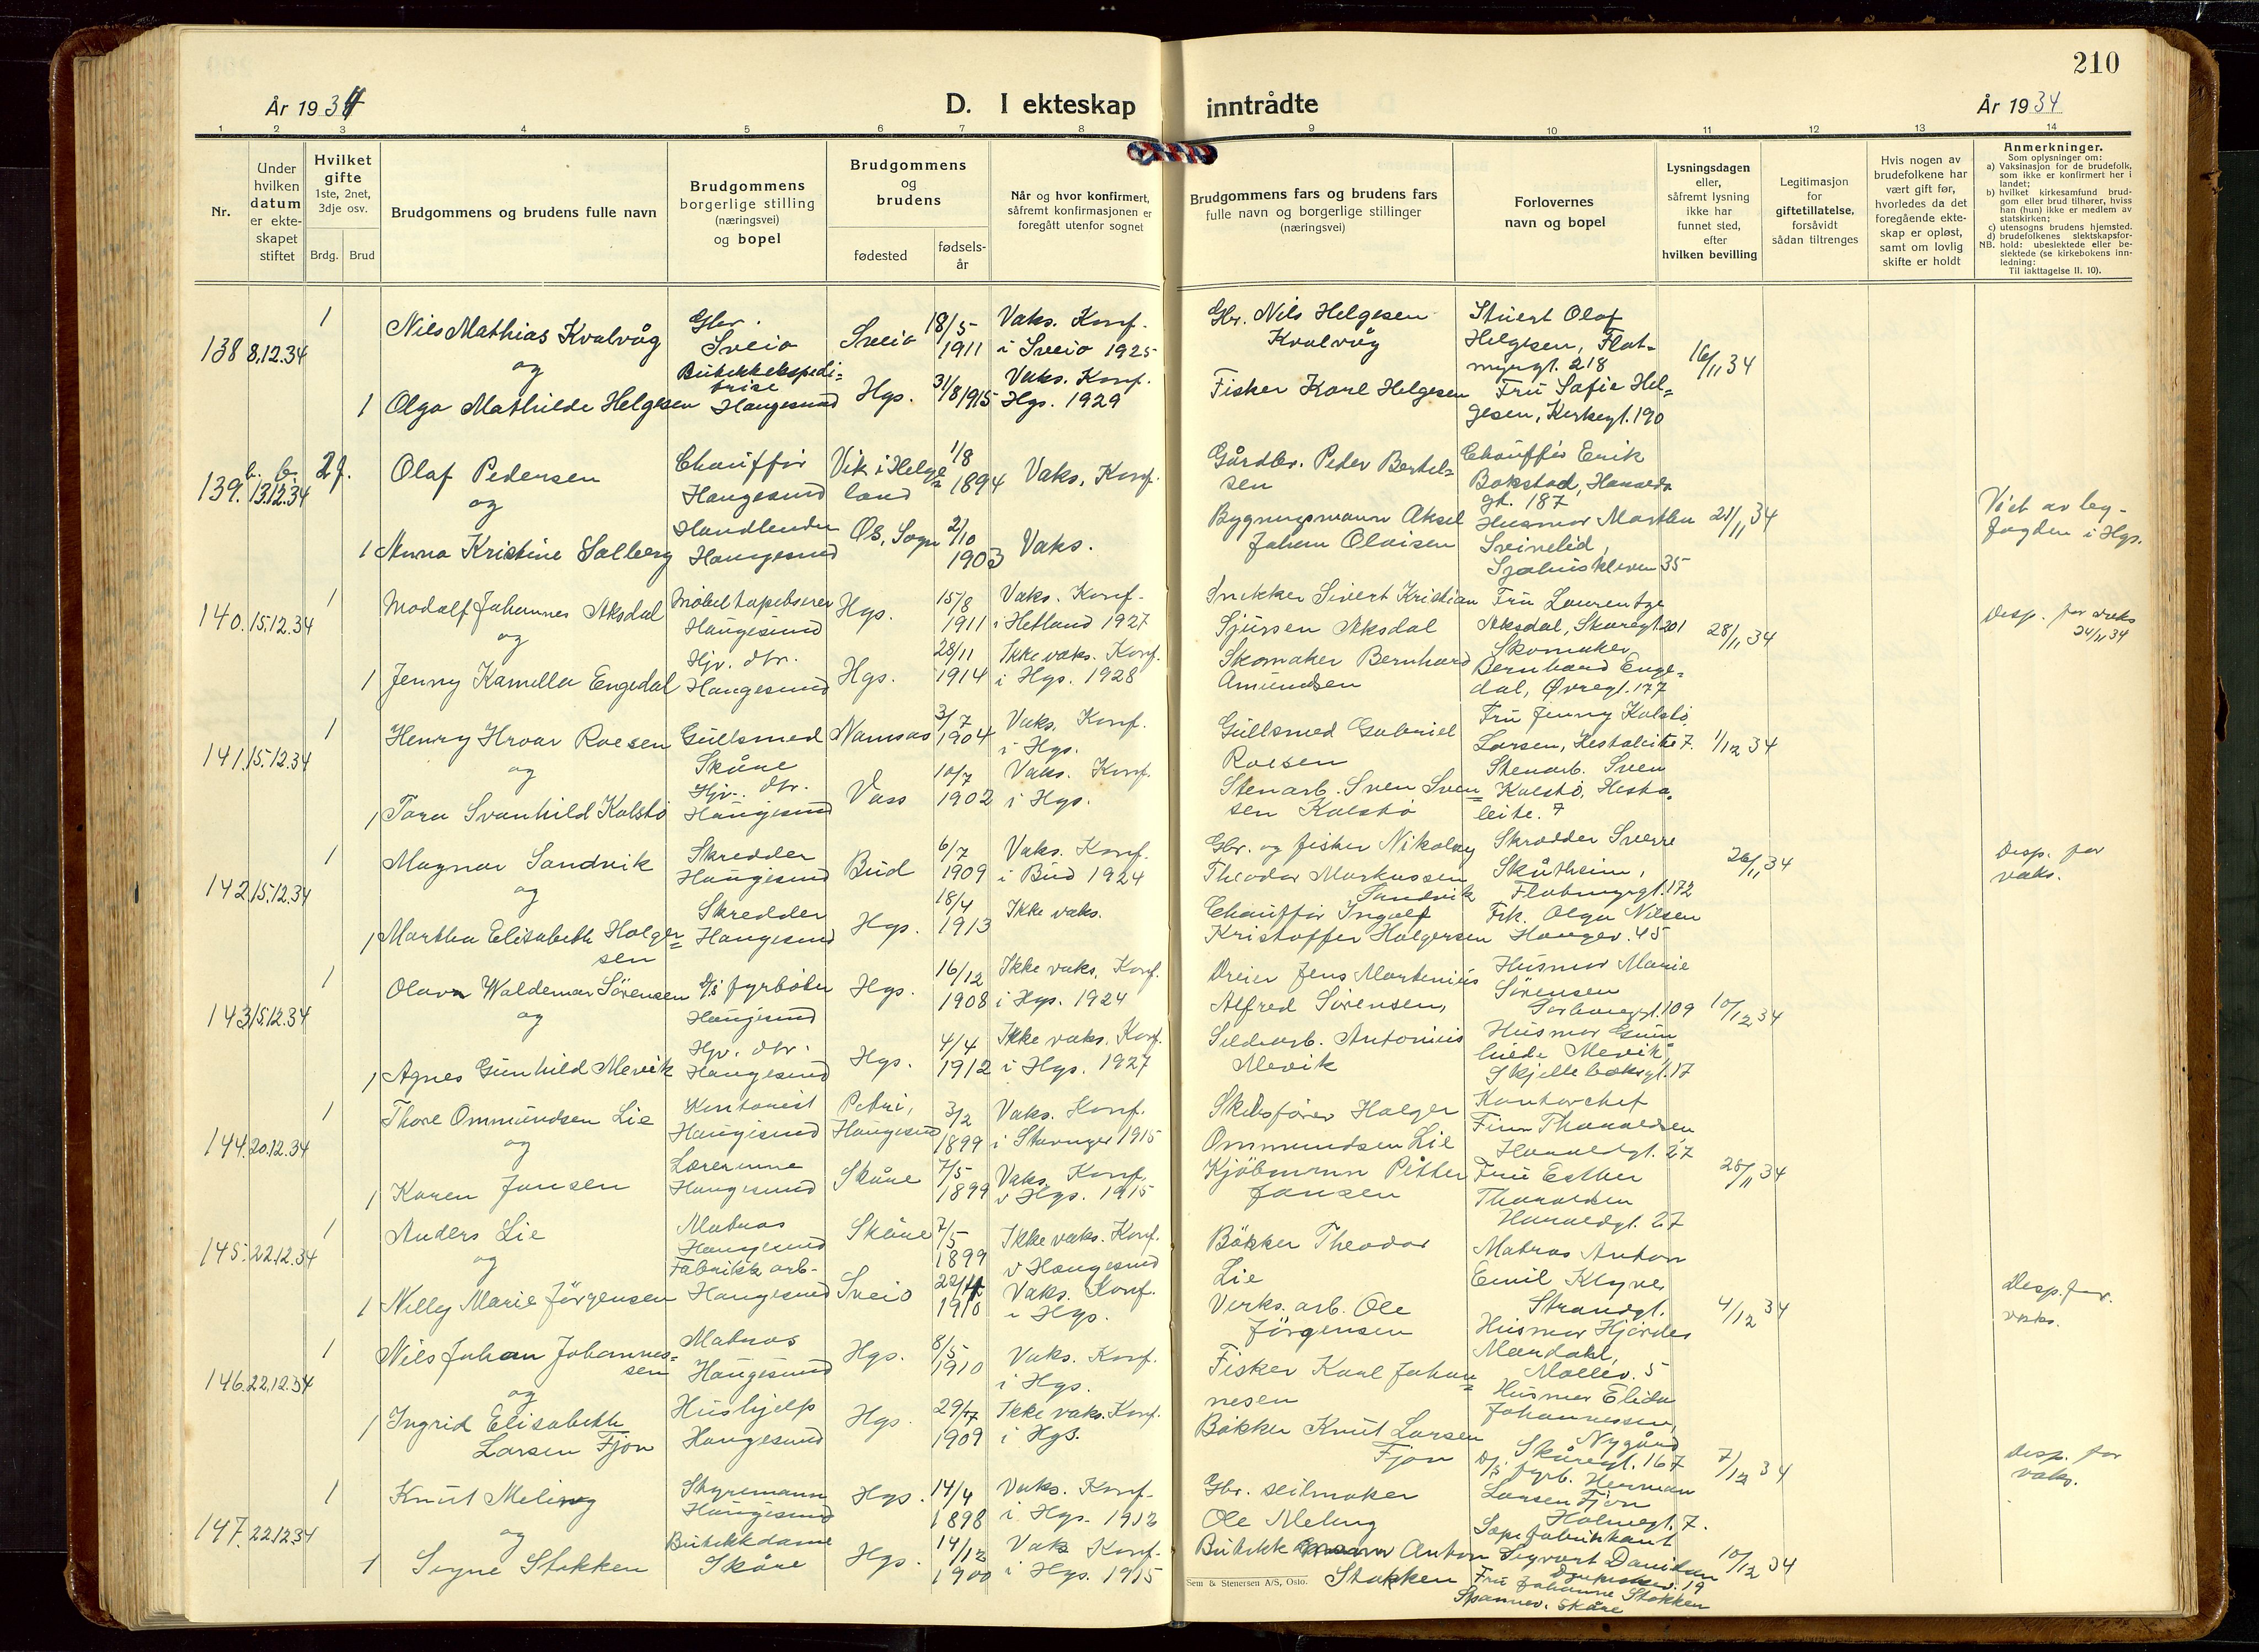 210
År 1934
D. I ekteskap inntrådte
År 1934
1 2 3 4 5 6 7 8 9 10 11 12 13 14
Nr.
Under hvilken datum er ekteskapet stiftet
Hvilket gifte
1ste, 2net, 3dje osv.
Brdg. Brud
Brudgommens og brudens fulle navn
Brudgommens borgerlige stilling (næringsvei) og bopel
Brudgommens og brudens
fødested
fødsels-år
Når og hvor konfirmert, såfremt konfirmasjonen er foregått utenfor sognet
Brudgommens fars og brudens fars fulle navn og borgerlige stillinger (næringsvei)
Forlovernes navn og bopel
Lysningsdagen eller, såfremt lysning ikke har funnet sted, efter hvilken bevilling
Legitimasjon for giftetillatelse, forsåvidt sådan tiltrenges
Hvis nogen av brudefolkene har vært gift før, hvorledes da det foregående ekteskap er opløst, samt om lovlig skifte er holdt
Anmerkninger.
Som oplysninger om:
a) Vaksinasjon for de brudefolk, som ikke er konfirmert her i landet;
b) hvilket kirkesamfund brudgom eller brud tilhører, hviss han (hun) ikke er medlem av statskirken;
c) utensogns brudens hjemsted.
d) brudefolkenes slektskapsforhold: ubeslektede eller beslektede (se kirkebokens innledning:
NB.
Til iakttagelse II. 10).
138 8.12.34
1 Nils Mathias Kvalvåg
Gbr. Sveio
Sveio 18/5 1911
Vaks. Konf. i Sveio 1925
Gbr. Nils Helgesen Kvalvåg
Stuert Olaf Helgesen, Flotmyrgt. 218
16/11 34
og
1 Olga Mathilde Helgesen
Butikkekspeditrise Haugesund
Hgs. 31/8 1915
Vaks. Konf. Hgs. 1929
Fisker Karl Helgesen
Fru Sofie Helgesen, Kirkegt. 190
139. b. b. 13.12.34
2 f. Olaf Pedersen
Chauffør Haugesund
Vik i Helgeland 1/8 1894
Vaks. Konf.
Gårdbr. Peder Bertelsen
Chauffør Erik Bokstad, Haraldsgt. 187
21/11 34
og
1 Anna Kristine Solberg
Handlende Haugesund
Os, Sogn 2/10 1903
Vaks.
Bygningsmann Aksel Johan Olaisen
Husmor Martha Sveinelid, 35
140. 15.12.34
1 Modolf Johannes Aksdal
Møbeltapetserer Haugesund
Hgs. 15/8 1911
Vaks. Konf. i Hetland 1927
Snekker Sivert Kristian Sjursen Aksdal
Fru Laurentze Aksdal, Skåregt. 201
28/11 34
Desp. for vaks 24/11 34
og
1 Jenny Kamilla Engedal
Hjv. dtr. Haugesund
Hgs. 28/11 1914
Ikke vaks. Konf. i Hgs. 1928
Skomaker Bernhard Amundsen
Skomaker Bernhard Engedal, Øvregt. 177
141. 15.12.34
1 Henry Hroar Roesen
Gullsmed Skåne
Namsos 3/7 1904
Vaks. Konf. i Hgs.
Gullsmed Gabriel Roesen
Fru Jenny Kolstø Larsen, Hestaleite 7.
1/12 34
og
1 Tora Svanhild Kolstø
Hjv. dtr. Haugesund
Voss 10/7 1902
Vaks. Konf. i Hgs.
Stenarb. Sven Svensen Kolstø
Stenarb. Sven Kolstø, Hestaleite. 7
142 15.12.34
1 Magnar Sandvik
Skredder Haugesund
Bud 6/7 1909
Vaks. Konf. i Bud 1924
Gbr. og fisker Nikolay Theodor Markussen Sandvik
Skredder Sverre Skåtheim, Flotmyrgt. 172
26/11 34
Desp. for vaks.
og
1 Martha Elisabeth Holgersen
Skredder Haugesund
Hgs. 18/4 1913
Ikke vaks.
Chauffør Ingolf Kristoffer Holgersen
Frk. Olga Nilsen Haugev. 45
143 15.12.34
1 Olav Waldemar Sörensen
D/s fyrbøter Haugesund
Hgs. 16/12 1908
Ikke vaks. Konf. i Hgs. 1924
Dreier Jens Martenius Alfred Sörensen,
Husmor Marie Sörensen 109
10/12 34
og
1 Agnes Gunhild Mevik
Hjv. dtr. Haugesund
Hgs. 4/4 1912
Ikke vaks. Konf. i Hgs. 1927
Sildearb. Antonius Mevik
Husmor Gunhilde Mevik, Skjellebeksgt. 17
144. 20.12.34
1 Thore Ommundsen Lie
Kontorist Haugesund
Petri, Haugesund 3/2 1899
Vaks. Konf. i Stavanger 1915
Skibsfører Holger Ommundsen Lie
Kontorchef Finn Thoralsen, Haraldgt. 27
28/11 34
og
1 Karen Jansen
Lærerinne Haugesund
Skåre 7/5 1899
Vaks. Konf. v Hgs. 1915
Kjöbmann Petter Jansen
Fru Esther Thoralsen Haraldgt. 27
145. 22.12.34
1 Anders Lie
Matros Haugesund
Skåne 7/5 1899
Ikke vaks. Konf. v Haugesund
Bökker Theodor Lie
Matros Anton Emil Klyve Strandgt.
4/12 34
Desp. for. vaks.
og
1 Nelly Marie Jörgensen
Fabrikk arb. Haugesund
Sveio 22/4 1910
Vaks. Konf. i Hgs.
Verks. arb. Ole Jörgensen
Husmor Hjördis Mandahl, Møllev. 5
146. 22.12.34
1 Nils Johan Johannessen
Matros Haugesund
Hgs. 8/5 1910
Vaks. Konf. i Hgs.
Fisker Karl Johannesen
Husmor Elida Johannessen, Nygård Skåregt. 167
7/12 34
Desp. for vaks.
og
1 Ingrid Elisabeth Larsen Fjon
Hushjelp Haugesund
Hgs. 29/7 1909
Ikke vaks. Konf. i Hgs.
Bökker Knut Larsen Fjon
D/s fyrb. Herman Larsen Fjon Holmegt. 7.
147. 22.12.34
1 Knut Meling
Styremann Haugesund
Hgs. 14/4 1898
Vaks. Konf. i Hgs. 1912
Gbr. seilmaker Ole Meling
Såpefabrikkant Sigvart Danielsen 19
10/12 34
og
1 Signe Stokken
Butikkdame Skåre
Hgs. 14/12 1900
Vaks Konf. i Hgs. 1915
Butikk Anton Stokken
Fru Johanne Stokken Spannev. Skåre
Sem & Stenersen A/S, Oslo.